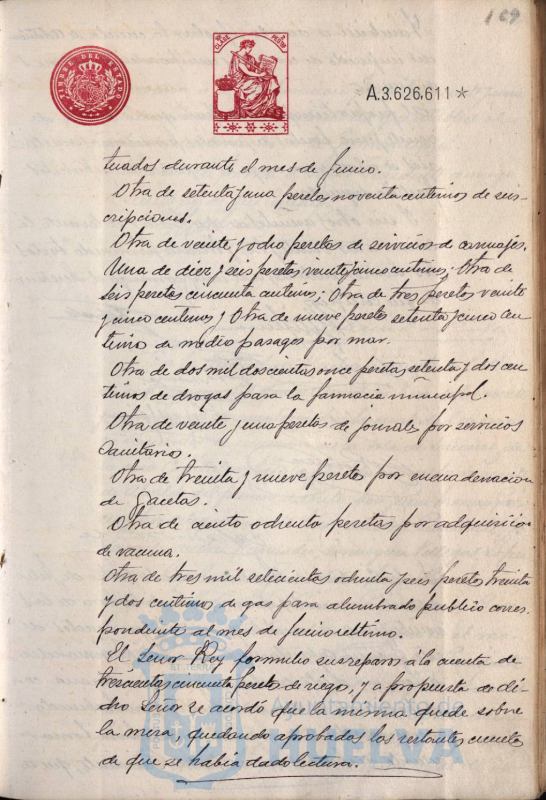 169
TIMBRE DEL ESTADO
CLASE PESETAS
A.3.626,611*
tuados durante el mes de Junio.
Otra de setenta y una pesetas noventa centimos de sus-
cripciones.
Otra de veinte y ocho pesetas de servicios de carruajes.
Una de diez y seis pesetas veinte y cinco centimos; Otra de
seis pesetas cincuenta centimos; Otra de tres pesetas veinte
y cinco centimos y Otra de nueve pesetas setenta y cinco cen-
timos de medio pasages por mar.
Otra de dos mil doscientas once pesetas, setenta y dos cen
timos de drogas para la farmacia municipal.
Otra de veinte y una pesetas de jornales por servicios
Sanitarios.
Otra de treinta y nueve pesetas por encuadernacion
de Gacetas.
Otra de ciento ochenta pesetas por adquisicion
de vacuna.
Otra de tres mil setecientas ochenta y seis pesetas treinta
y dos centimos de gas para alumbrado publico corres-
pondiente al mes de Junio ultimo.
El Señor Rey formulio sus reparos á la cuenta de
trescientas cincuenta pesetas de riego, y a propuesta de di-
cho Señor se acordó que la misma quede sobre
la mesa, quedando aprobadas las restantes cuentas
de que se habia dado lectura.
Ayuntamiento de
HUELVA